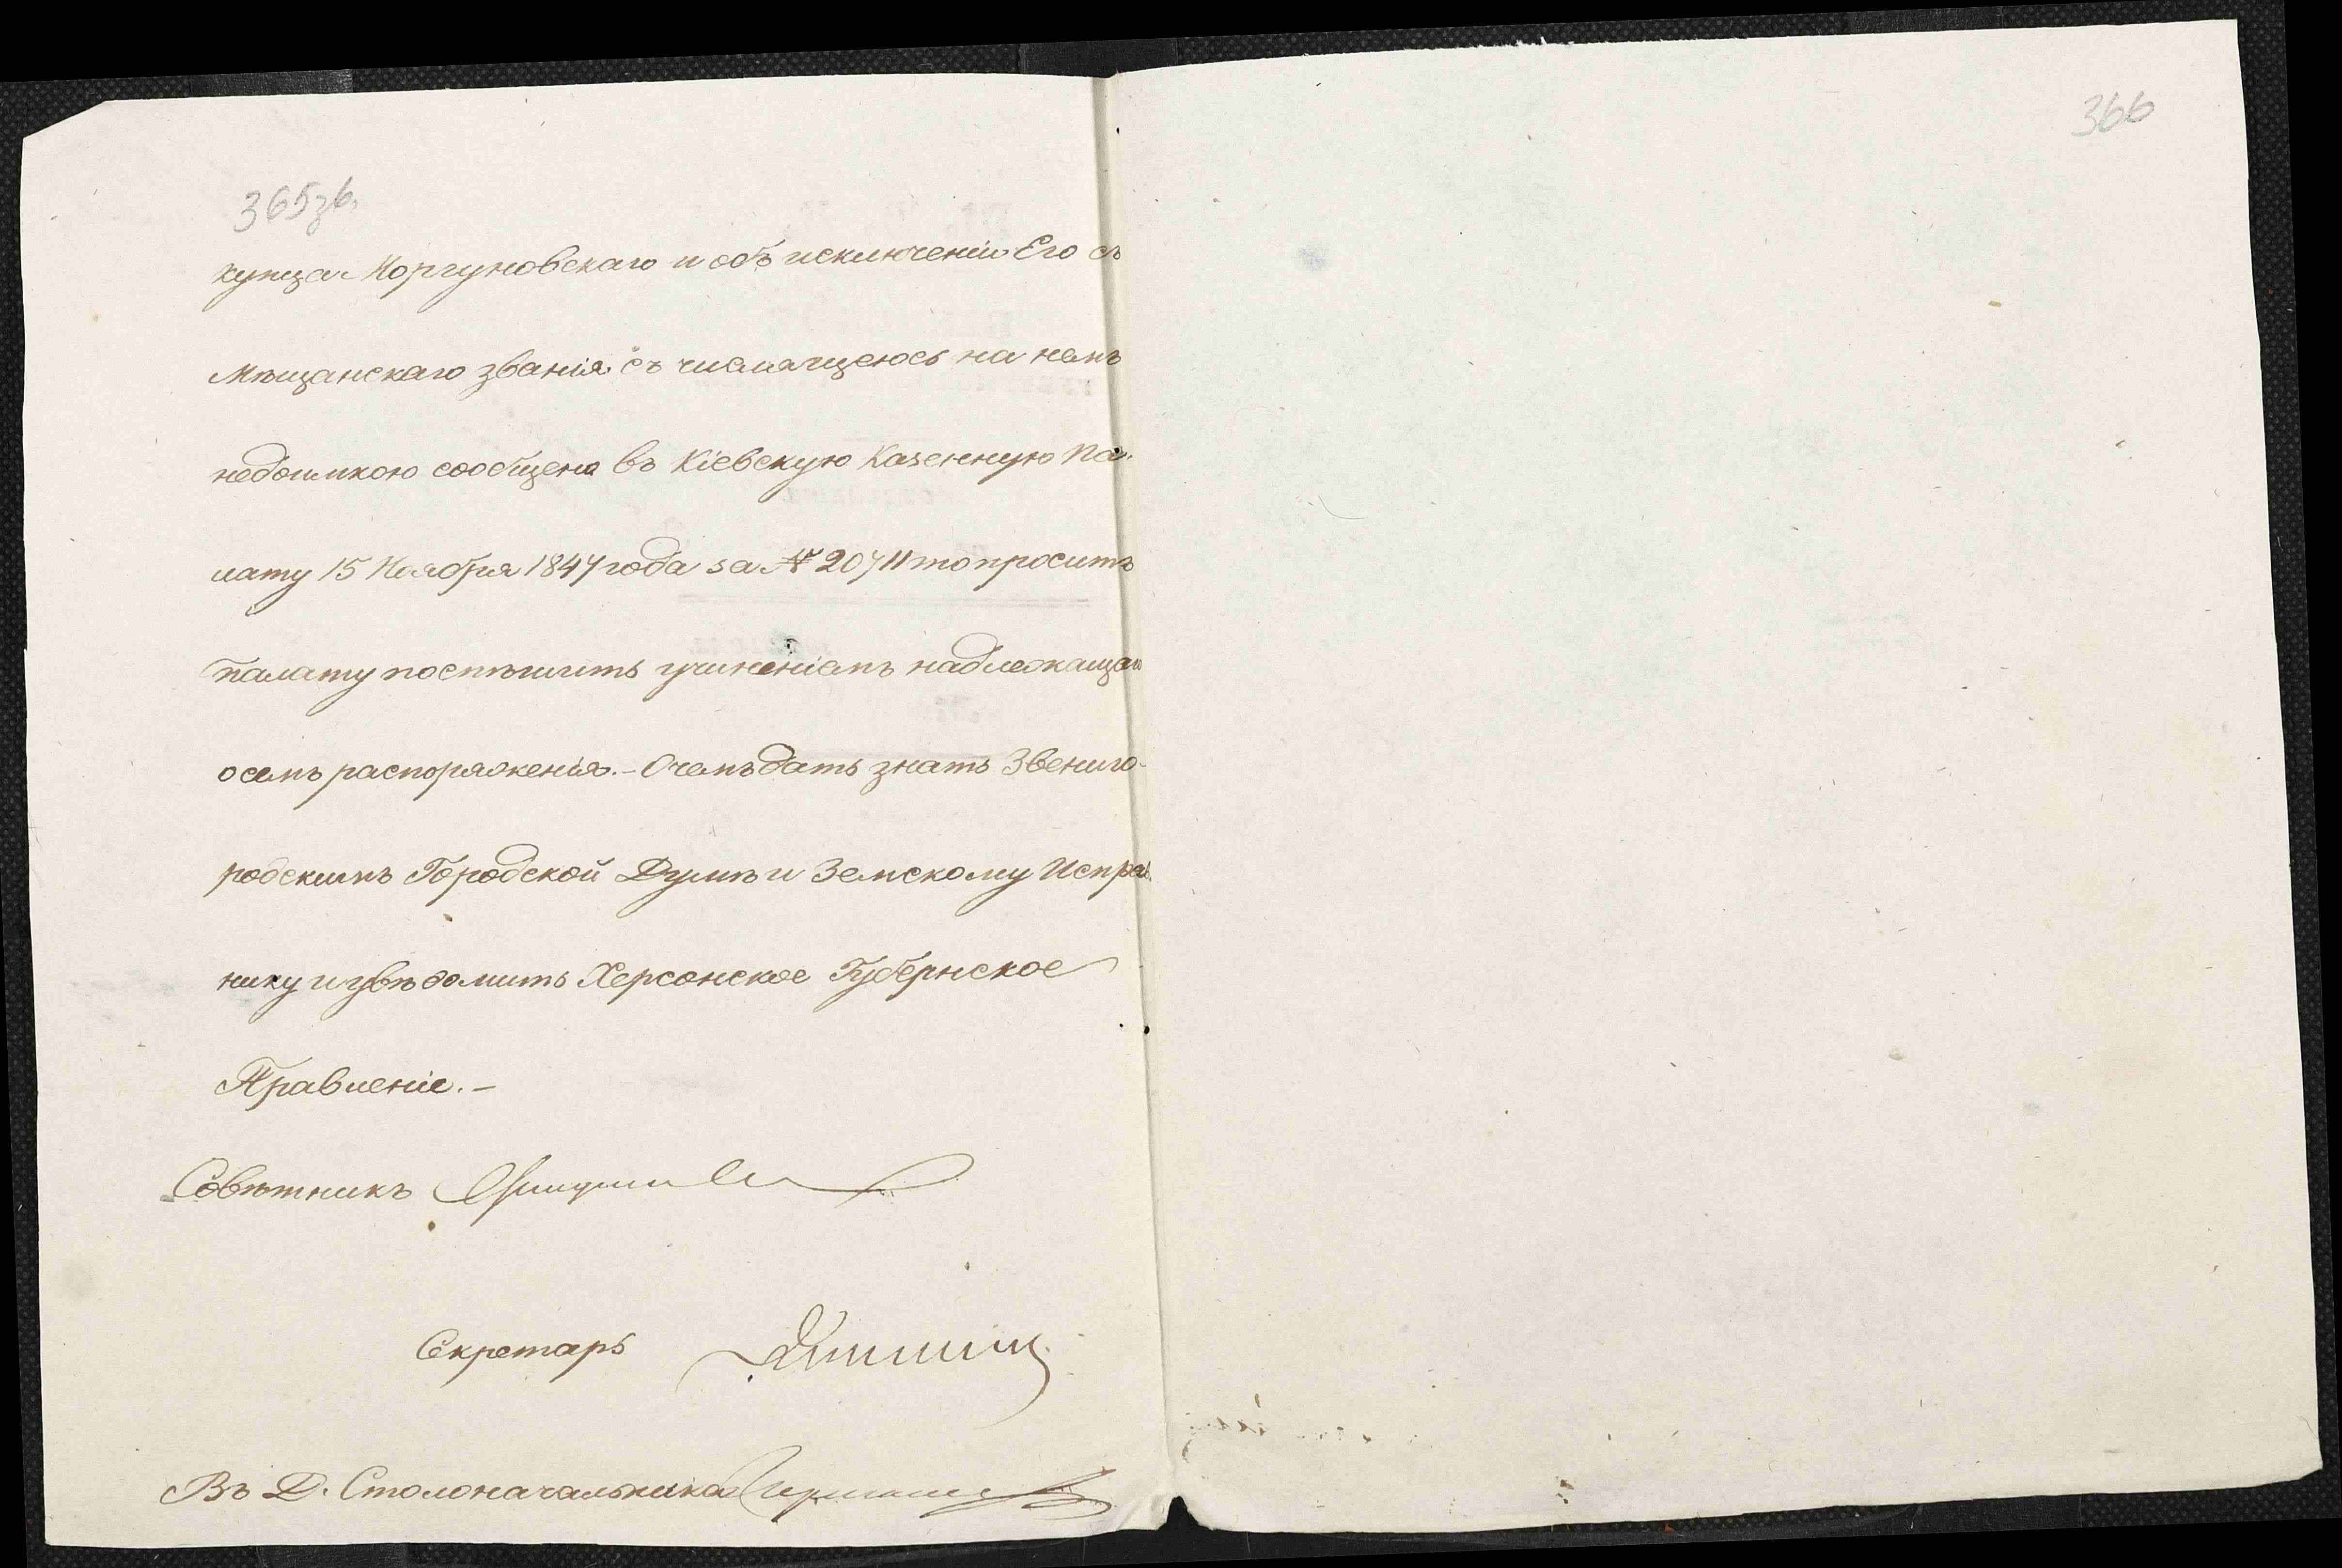 365зв.
366
купца Моргуновскаго и объ исключеніи Его съ
мѣщанскаго званія съ числящеюсь на немъ
недоимкою сообщено въ Кіевскую Казенную Па-
лату 15 Ноября 1847 года за № 20711 то просить
палату поспѣшить учиненіемъ надлежащаго
осемъ распоряженія.- Очемъ дать знать Звениго-
родскимъ Городской Думѣ и Земскому Исправ
нику и увѣдомить Херсонское Губернское
Правленіе.-
Совѣтникъ
Секретарь
Въ Д. Столоначальника